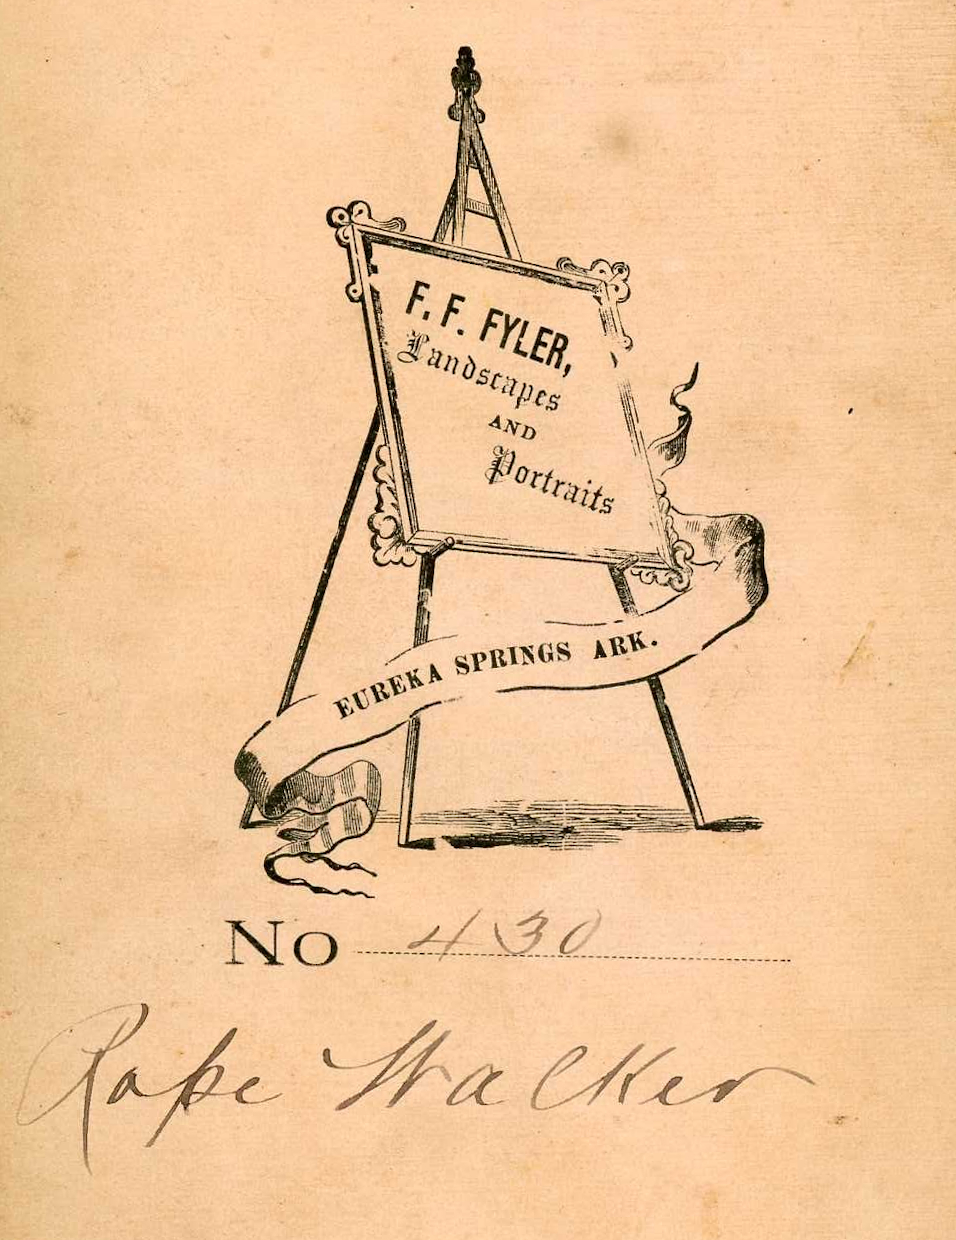 F. F. FYLER,
Landscapes
AND
Portraits
EUREKA SPRINGS ARK.
No 430
Rope Walker